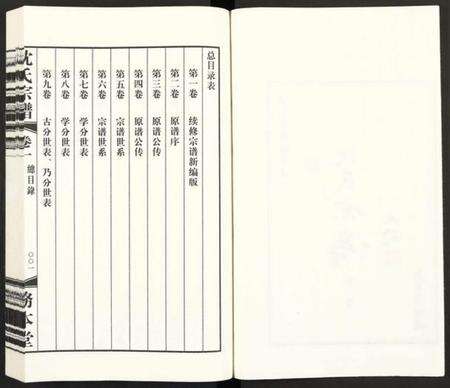 总目录表
第一卷 续修宗谱新编版
第二卷 原谱序
第三卷 原谱公传
第四卷 原谱公传
第五卷 宗谱世系
第六卷 宗谱世系
第七卷 学分世表
第八卷 学分世表
第九卷 古分世表、乃分世表
沈氏宗谱
卷一
總目錄
〇〇一
務本堂